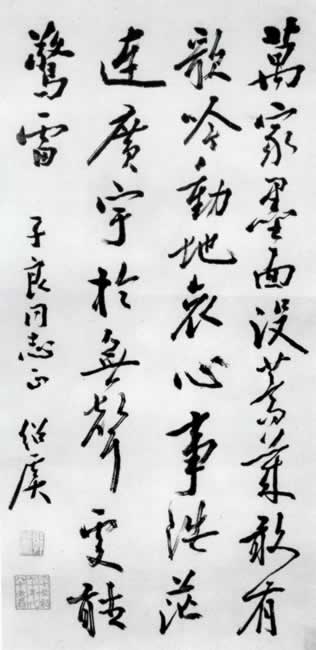 萬家墨面沒蒿萊敢有
歌吟動地哀心事浩茫
連廣宇於無聲處聽
驚雷 子良同志正 紹虞